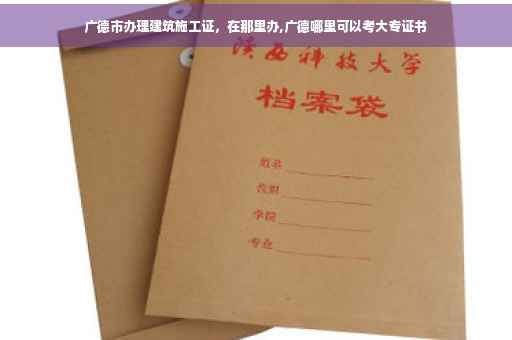 广德市办理建筑施工证，在那里办,广德哪里可以考大专证书
陕西科技大学
档案袋
姓名
教别
学院
专业